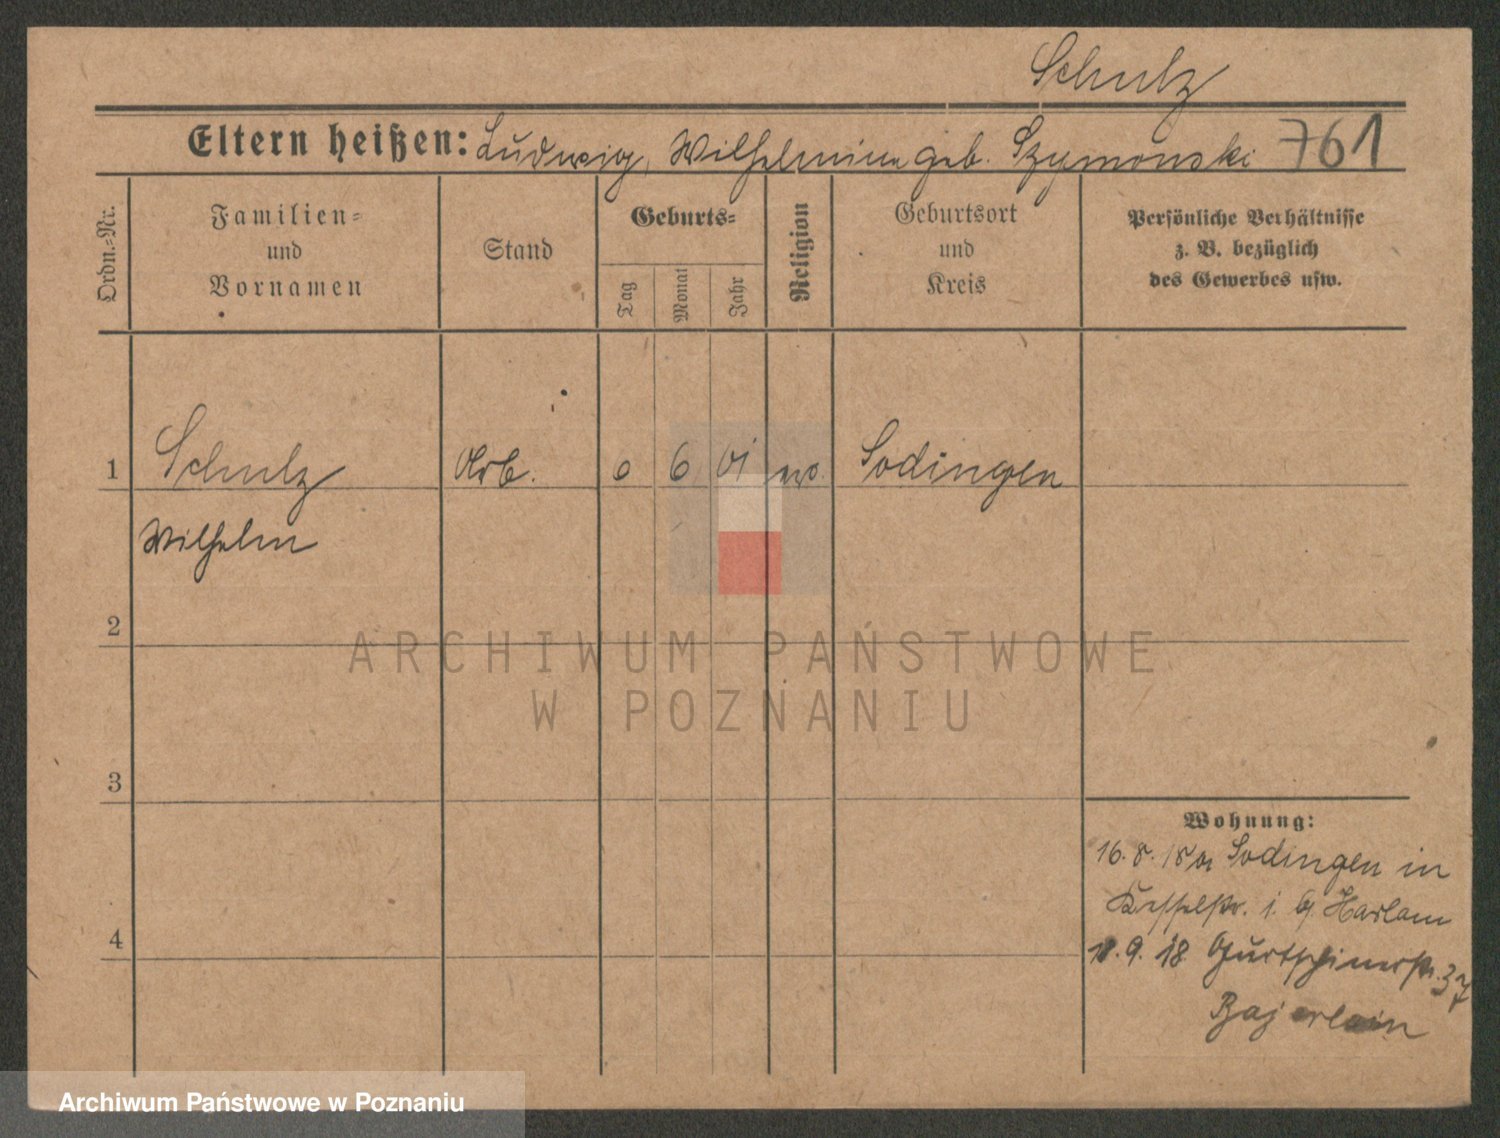 Schulz
Eltern heißen: Ludwig, Wilhelmine geb. Szymonski 761
Ordn.=Nr.
Familien=
und
Vornamen
Stand
Geburts=
Tag
Monat
Jahr
Religion
Geburtsort
und
Kreis
Persönliche Verhältnisse
z. B. bezüglich
des Gewerbes usw.
1 Schulz Arb. 6 01 Sodingen
Wilhelm
2
3
4
Wohnung:
16. 8. 18 Sodingen in
Kesselstr. i. Harlam
9. 18 Gurtschinerstr. 37
Bajerlein
ARCHIWUM PAŃSTWOWE
W POZNANIU
Archiwum Państwowe w Poznaniu